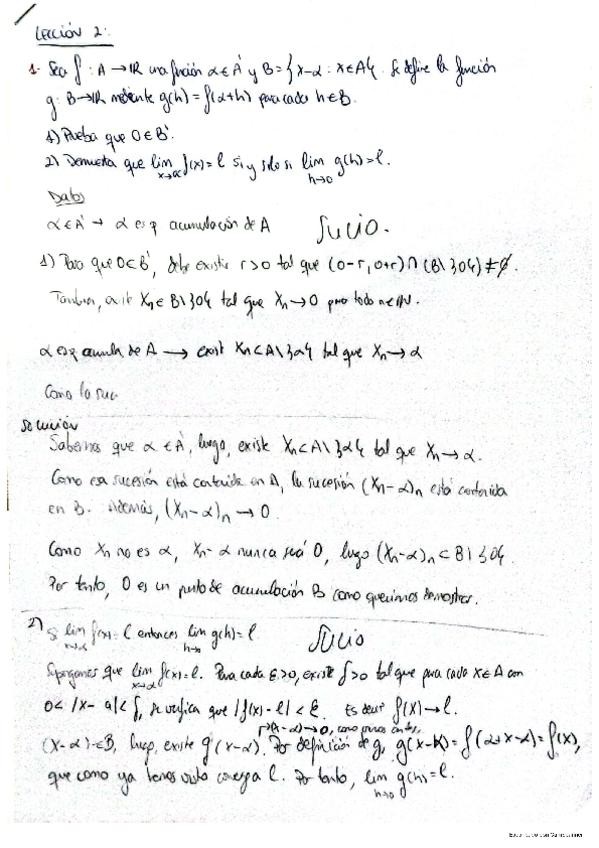 Lección 2:
1. Sea f: A → IR una función α ∈ A' y B = {x-α : x ∈ A}. Se define la función
g: B → IR mediante g(h) = f(α+h) para cada h ∈ B.
1) Prueba que 0 ∈ B'.
2) Demuestra que lim x→α f(x) = l si y solo si lim h→0 g(h) = l.
Datos
α ∈ A' → α es p. acumulación de A Sucio.
1) Para que 0 ⊂ B', debe existir r>0 tal que (0-r, 0+r) ∩ (B\{0}) ≠ ∅.
Xn ∈ B\{0} tal que Xn → 0 para todo n ∈ IN.
α es p. acumula de A → exist Xn ⊂ A\{α} tal que Xn → α
Como la suc
Solución
Sabemos que α ∈ A', luego, existe Xn ⊂ A\{α} tal que Xn → α.
Como esa sucesión está contenida en A, la sucesión (Xn-α)n está contenida
en B. Además, (Xn-α)n → 0.
Como Xn no es α, Xn-α nunca será 0, luego (Xn-α)n ⊂ B\{0}
Por tanto, 0 es un punto de acumulación B como queríamos demostrar.
2) Si lim x→α f(x) = l entonces lim h→0 g(h) = l Sucio
Supongamos que lim x→α f(x) = l. Para cada ε>0, existe δ>0 tal que para cada x ∈ A con
0 < |x-α| < δ, se verifica que |f(x)-l| < ε. Es decir f(x) → l.
(x-α) → 0, como
(x-α) ∈ B, luego, existe g(x-α). Por definición de g, g(x-α) = f(α+x-α) = f(x),
que como ya hemos visto converge a l. Por tanto, lim h→0 g(h) = l.